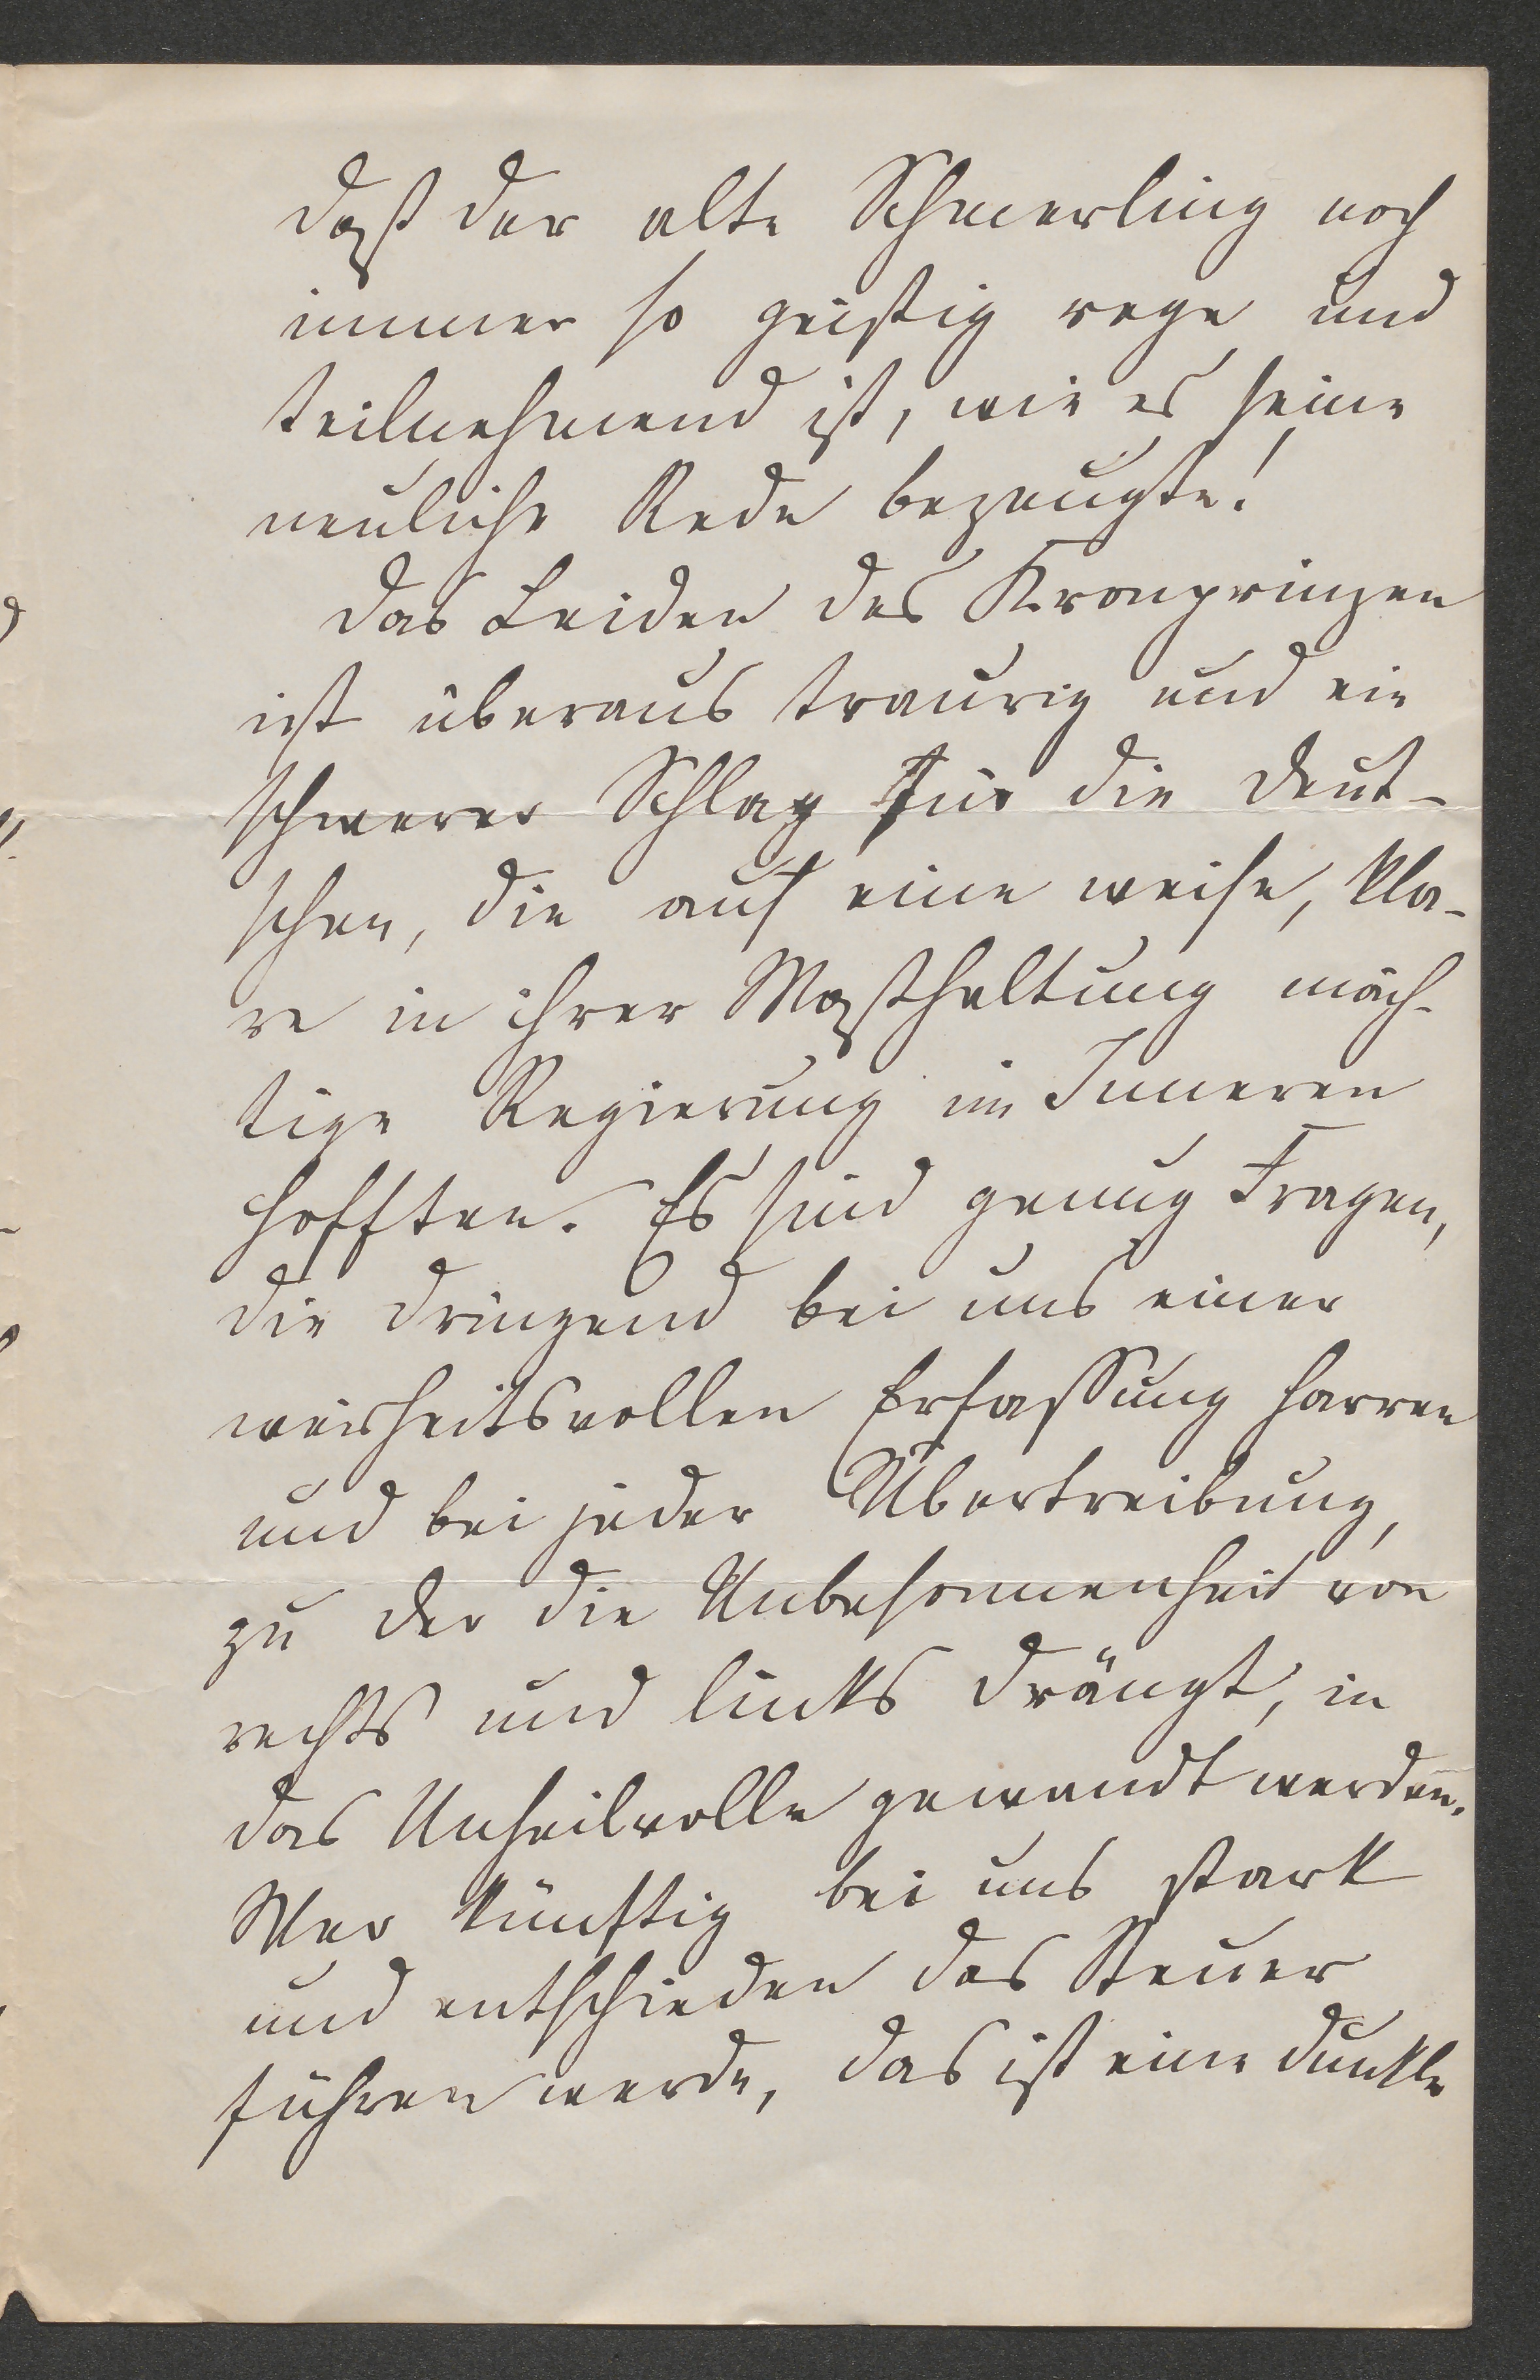 daß der alte Schmerling noch
immer so geistig rege und
teilnehmend ist, wie es seine
neuliche Rede bezeugte!
Das Leiden des Kronprinzen
ist überaus traurig und ein
schwerer Schlag für die Deut-
schen, die auf eine weise, kla-
re in ihrer Maßhaltung mäch-
tige Regierung im Inneren
hofften. Es sind genug Fragen,
die dringend bei uns einer
weisheitsvollen Erfassung harren
und bei jeder Übertreibung,
zu der die Unbesonnenheit von
rechts und links drängt, in
das Unheilvolle gewandt werden.
Wer künftig bei uns stark
und entschieden das Steuer
führen werde, das ist eine dunkle